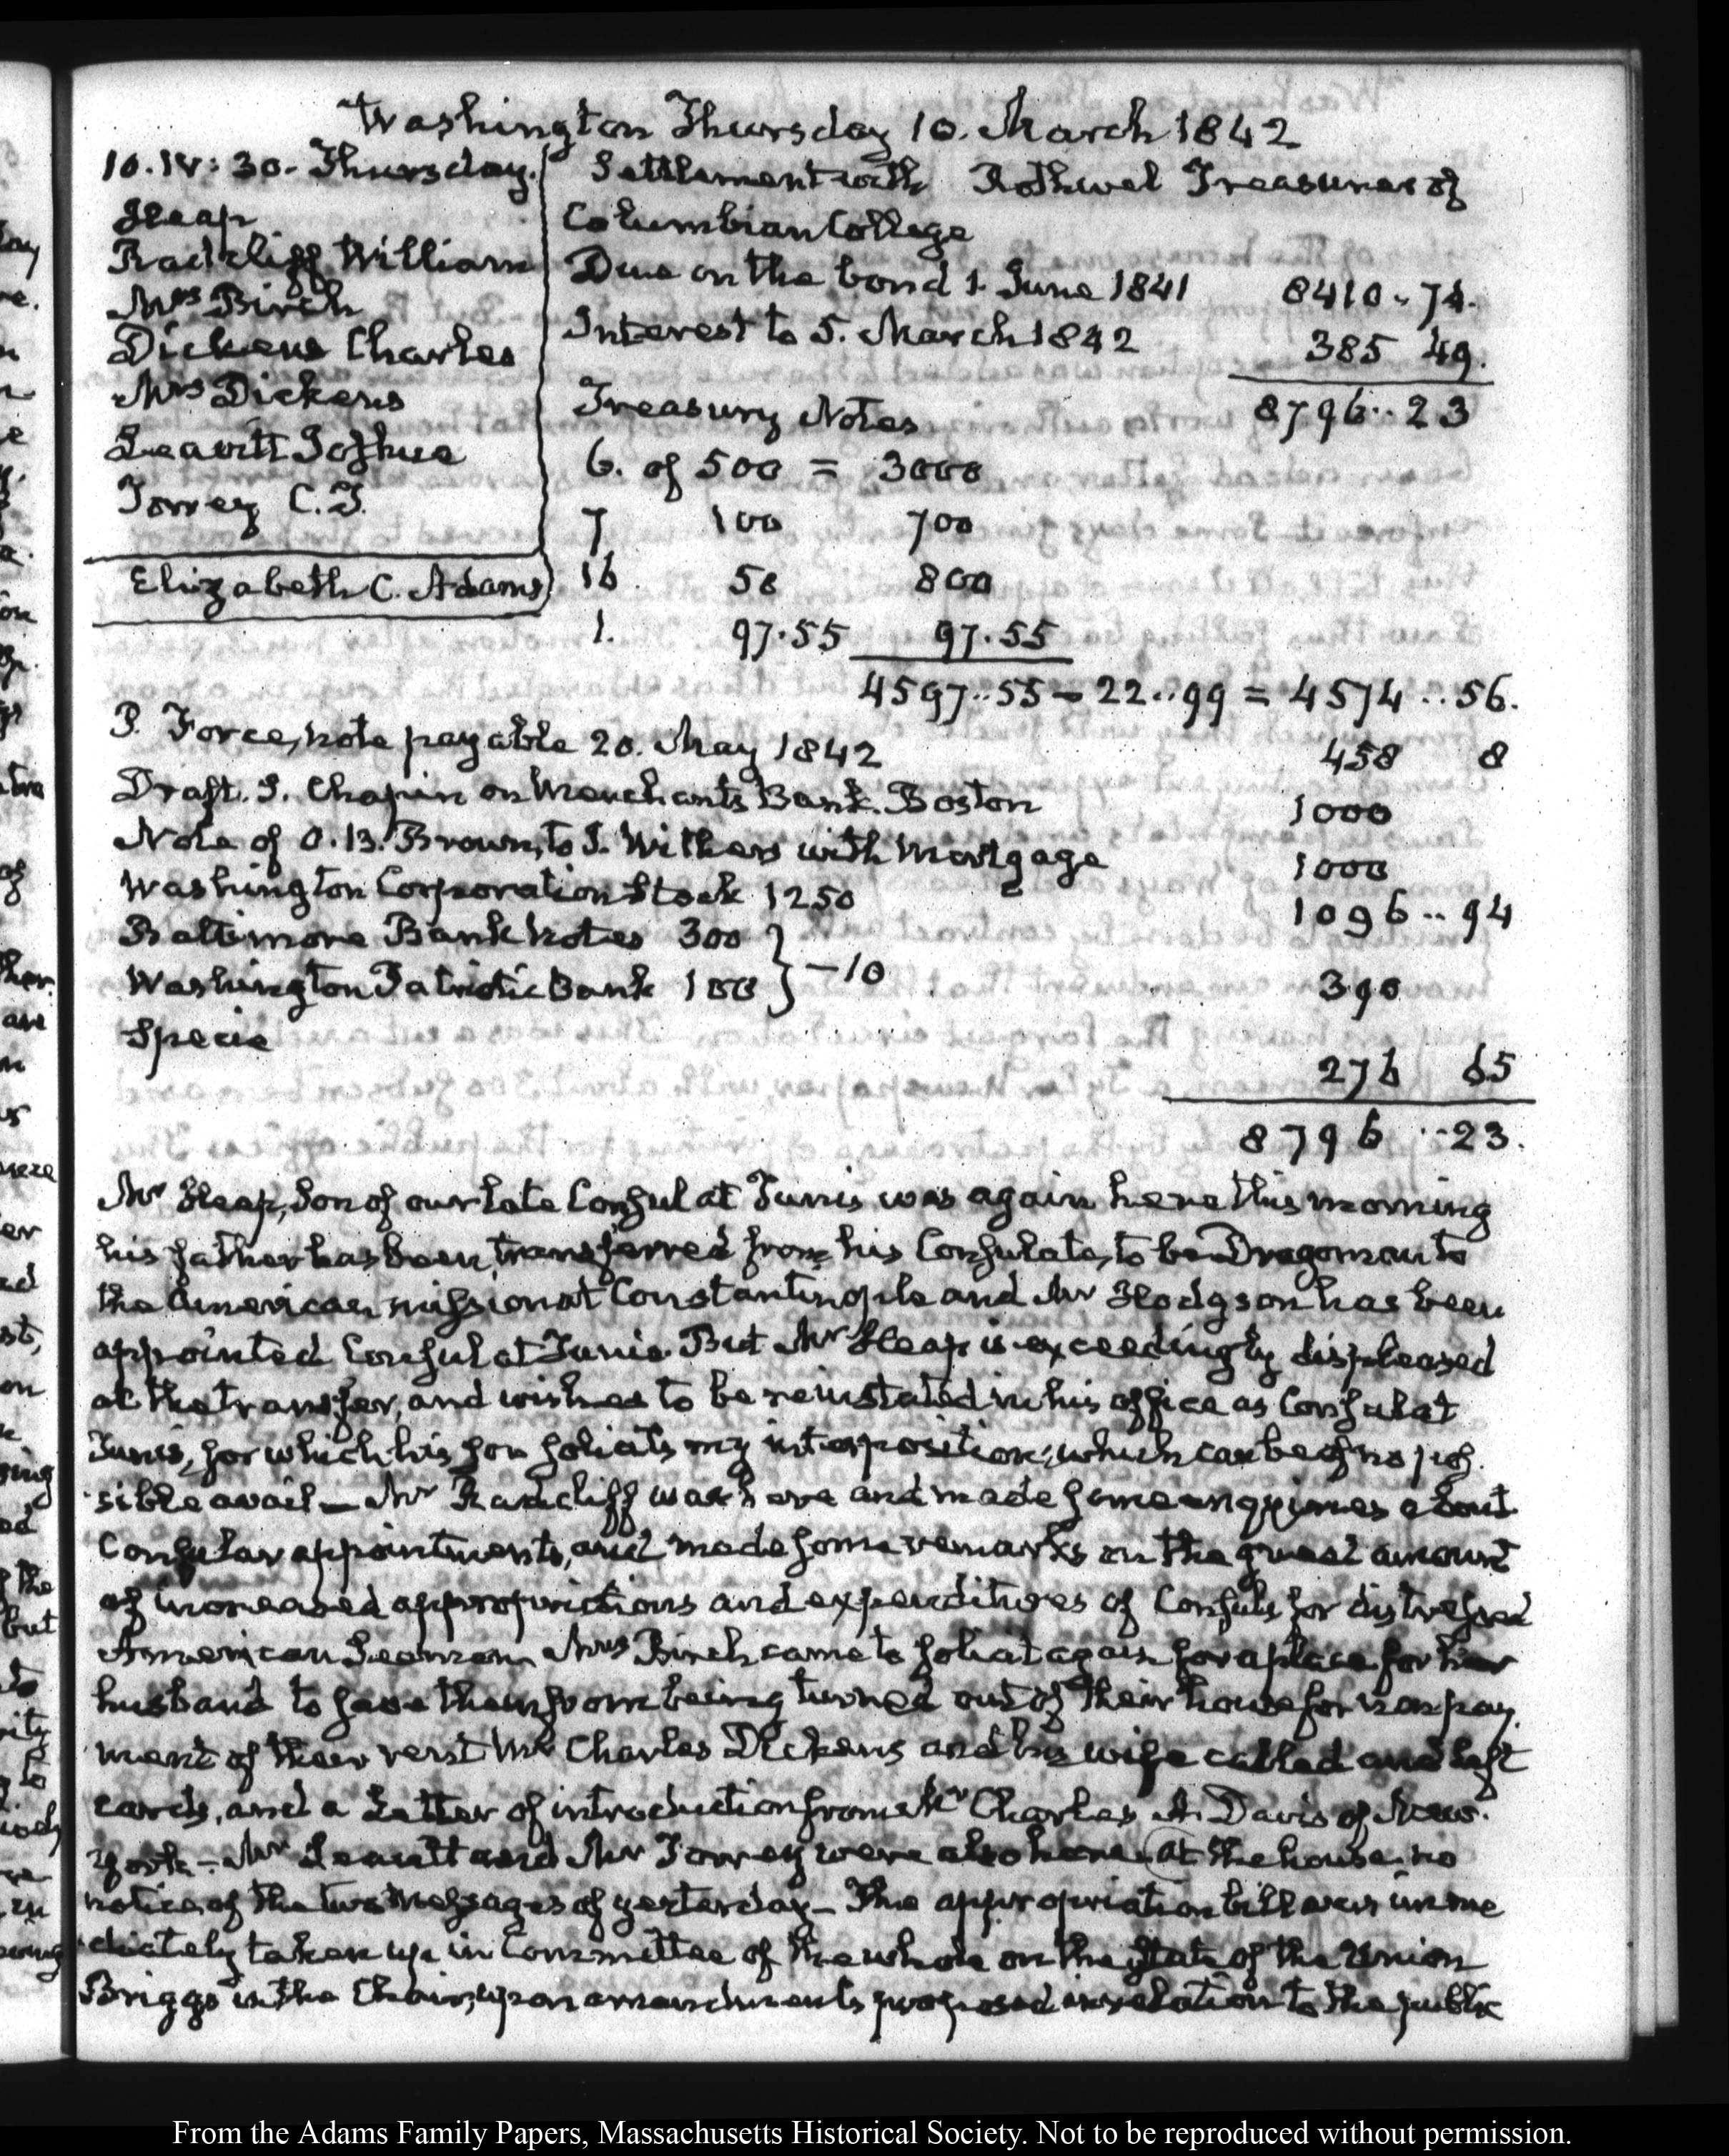 Washington Thursday 10. March 1842
10. IV: 30. Thursday.
Heap
Radcliff William
Mrs Birch
Dickens Charles
Mrs Dickens
Leavitt Joshua
Torrey C. T.
Elizabeth C. Adams
Settlement with Rothwel Treasurer of
Columbian College
Due on the bond 1. June 1841 8410..74.
Interest to 5. March 1842 385 49.
8796..23
Treasury Notes
6. of 500 = 3000
7 100 700
16 50 800
1. 97.55 97.55
4597..55 - 22..99 = 4574..56.
P. Force, note payable 20. May 1842 458 8
Draft. S. Chapin on Merchants Bank. Boston 1000
Note of O. B. Brown, to J. Withers with Mortgage 1000
Washington Corporation Stock 1250 1096..94
Baltimore Bank notes 300 } -10
Washington Patriotic Bank 100 390
Specie 276 65
8796..23.
Mr Heap, Son of our late Consul at Tunis was again here this morning
his father has been transferred from his Consulate, to be Dragoman to
the American mission at Constantinople and Mr Hodgson has been
appointed Consul at Tunis. But Mr Heap is exceedingly displeased
at the transfer, and wishes to be reinstated in his office as Consul at
Tunis, for which his son solicits my interposition; which can be of no pos-
sible avail — Mr Radcliff was here and made some enquiries about
Consular appointments, and made some remarks on the great amount
of increased appropriations and expenditures of Consuls for distressed
American Seamen. Mrs Birch came to solicit again for a place for her
husband to save them from being turned out of their house for non pay-
ment of their rent Mr Charles Dickens and his wife called and left
cards, and a Letter of introduction from Mr Charles A. Davis of New-
York — Mr Leavitt and Mr Torrey were also here. At the house, no
notice of the two Messages of yesterday — The appropriation bill was imme
diately taken up in Committee of the whole on the State of the Union
Briggs in the Chair, upon amendments proposed in relation to the public
From the Adams Family Papers, Massachusetts Historical Society. Not to be reproduced without permission.